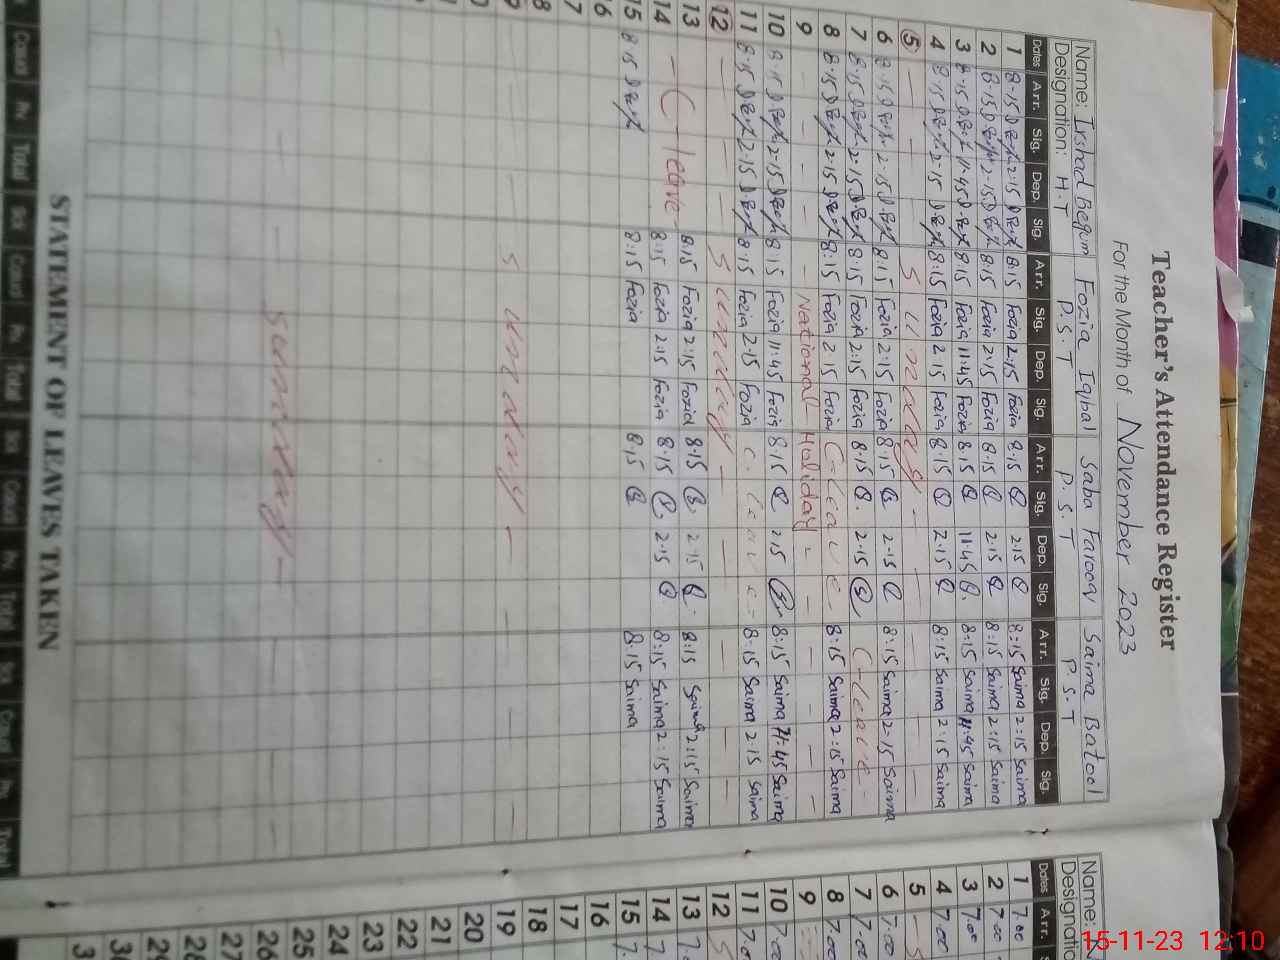 Teacher's Attendance Register
For the Month of November 2023
Name: Irshad Begum Fozia Iqbal Saba Farooq Saima Batool
Designation: H.T P.S.T P.S.T P.S.T
Dates Arr. Sig. Dep. Sig. Arr. Sig. Dep. Sig. Arr. Sig. Dep. Sig. Arr. Sig. Dep. Sig.
1 8-15 2-15 8:15 Fozia 2:15 Fozia 8-15 2-15 8:15 Saima 2-15 Saima
2 8-15 2-15 8:15 Fozia 2:15 Fozia 8-15 2-15 8:15 Saima 2:15 Saima
3 8-15 11-45 8:15 Fozia 11:45 Fozia 8-15 11-45 8:15 Saima 11:45 Saima
4 8-15 2-15 8:15 Fozia 2:15 Fozia 8-15 2-15 8:15 Saima 2:15 Saima
5 - Sunday -
6 8-15 2-15 8:15 Fozia 2:15 Fozia 8-15 2-15 8:15 Saima 2-15 Saima
7 8-15 2-15 8:15 Fozia 2:15 Fozia 8-15 2-15 C-leave-
8 8-15 2-15 8:15 Fozia 2:15 Fozia C-leave- 8:15 Saima 2:15 Saima
9 - National Holiday -
10 8-15 2-15 8:15 Fozia 11:45 Fozia 8-15 2-15 8:15 Saima 11:45 Saima
11 8-15 2-15 8:15 Fozia 2-15 Fozia C. leave- 8:15 Saima 2-15 Saima
12 - Sunday -
13 8:15 Fozia 2:15 Fozia 8-15 2-15 8:15 Saima 2:15 Saima
14 - C-leave 8:15 Fozia 2:15 Fozia 8-15 2-15 8:15 Saima 2:15 Saima
15 8-15 8:15 Fozia 8-15 8:15 Saima
16
17
18
19 - Sunday -
- Sunday -
STATEMENT OF LEAVES TAKEN
Count Pv. Total Sick Count Pv. Total Sick Count Pv. Total Sick Count Pv. Total
Name:
Designation
Dates Arr.
1 7.00
2 7.00
3 7.00
4 7.00
5 - S
6 7.00
7 7.00
8 7.00
9
10 7.00
11 7.00
12 S
13 7.
14 7.
15 7.
16
17
18
19
20
21
22
23
24
25
26
27
28
29
30
15-11-23 12:10